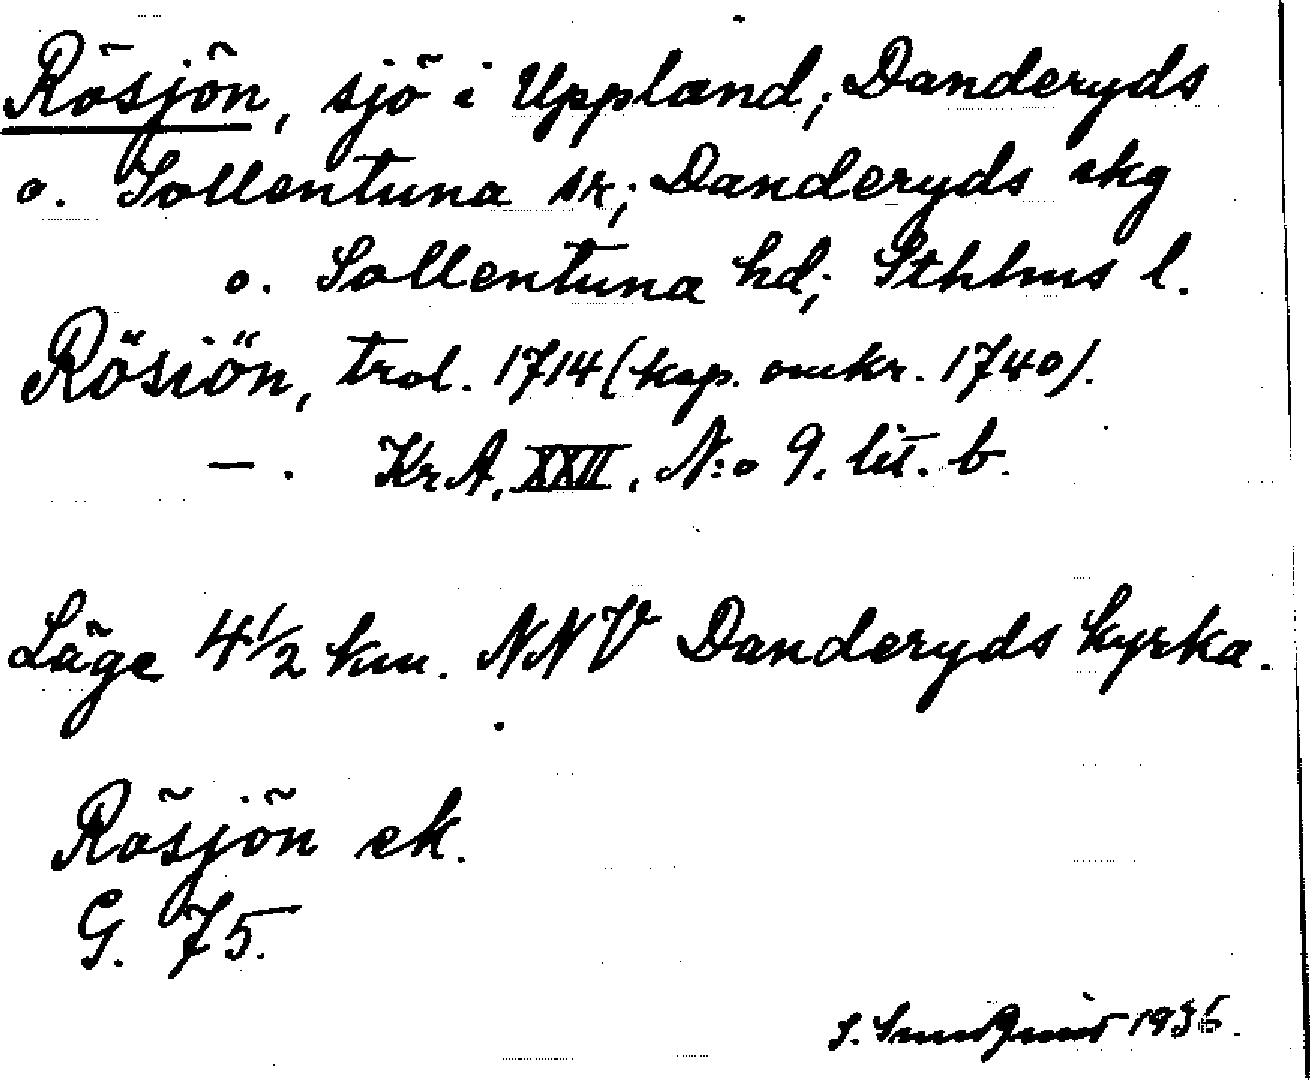 Rösjön, sjö i Uppland; Danderyds
o. Sollentuna sk; Danderyds skg
o. Sollentuna hd; Sthlms l.
Rösiön, trol. 1714 (kop. omkr. 1740).
— . KrA. XXII. N:o 9. lit. b.
Läge 4 1/2 km. NNV Danderyds kyrka.
Rösjön ek.
G. 75.
S. Sundqvist 1936.